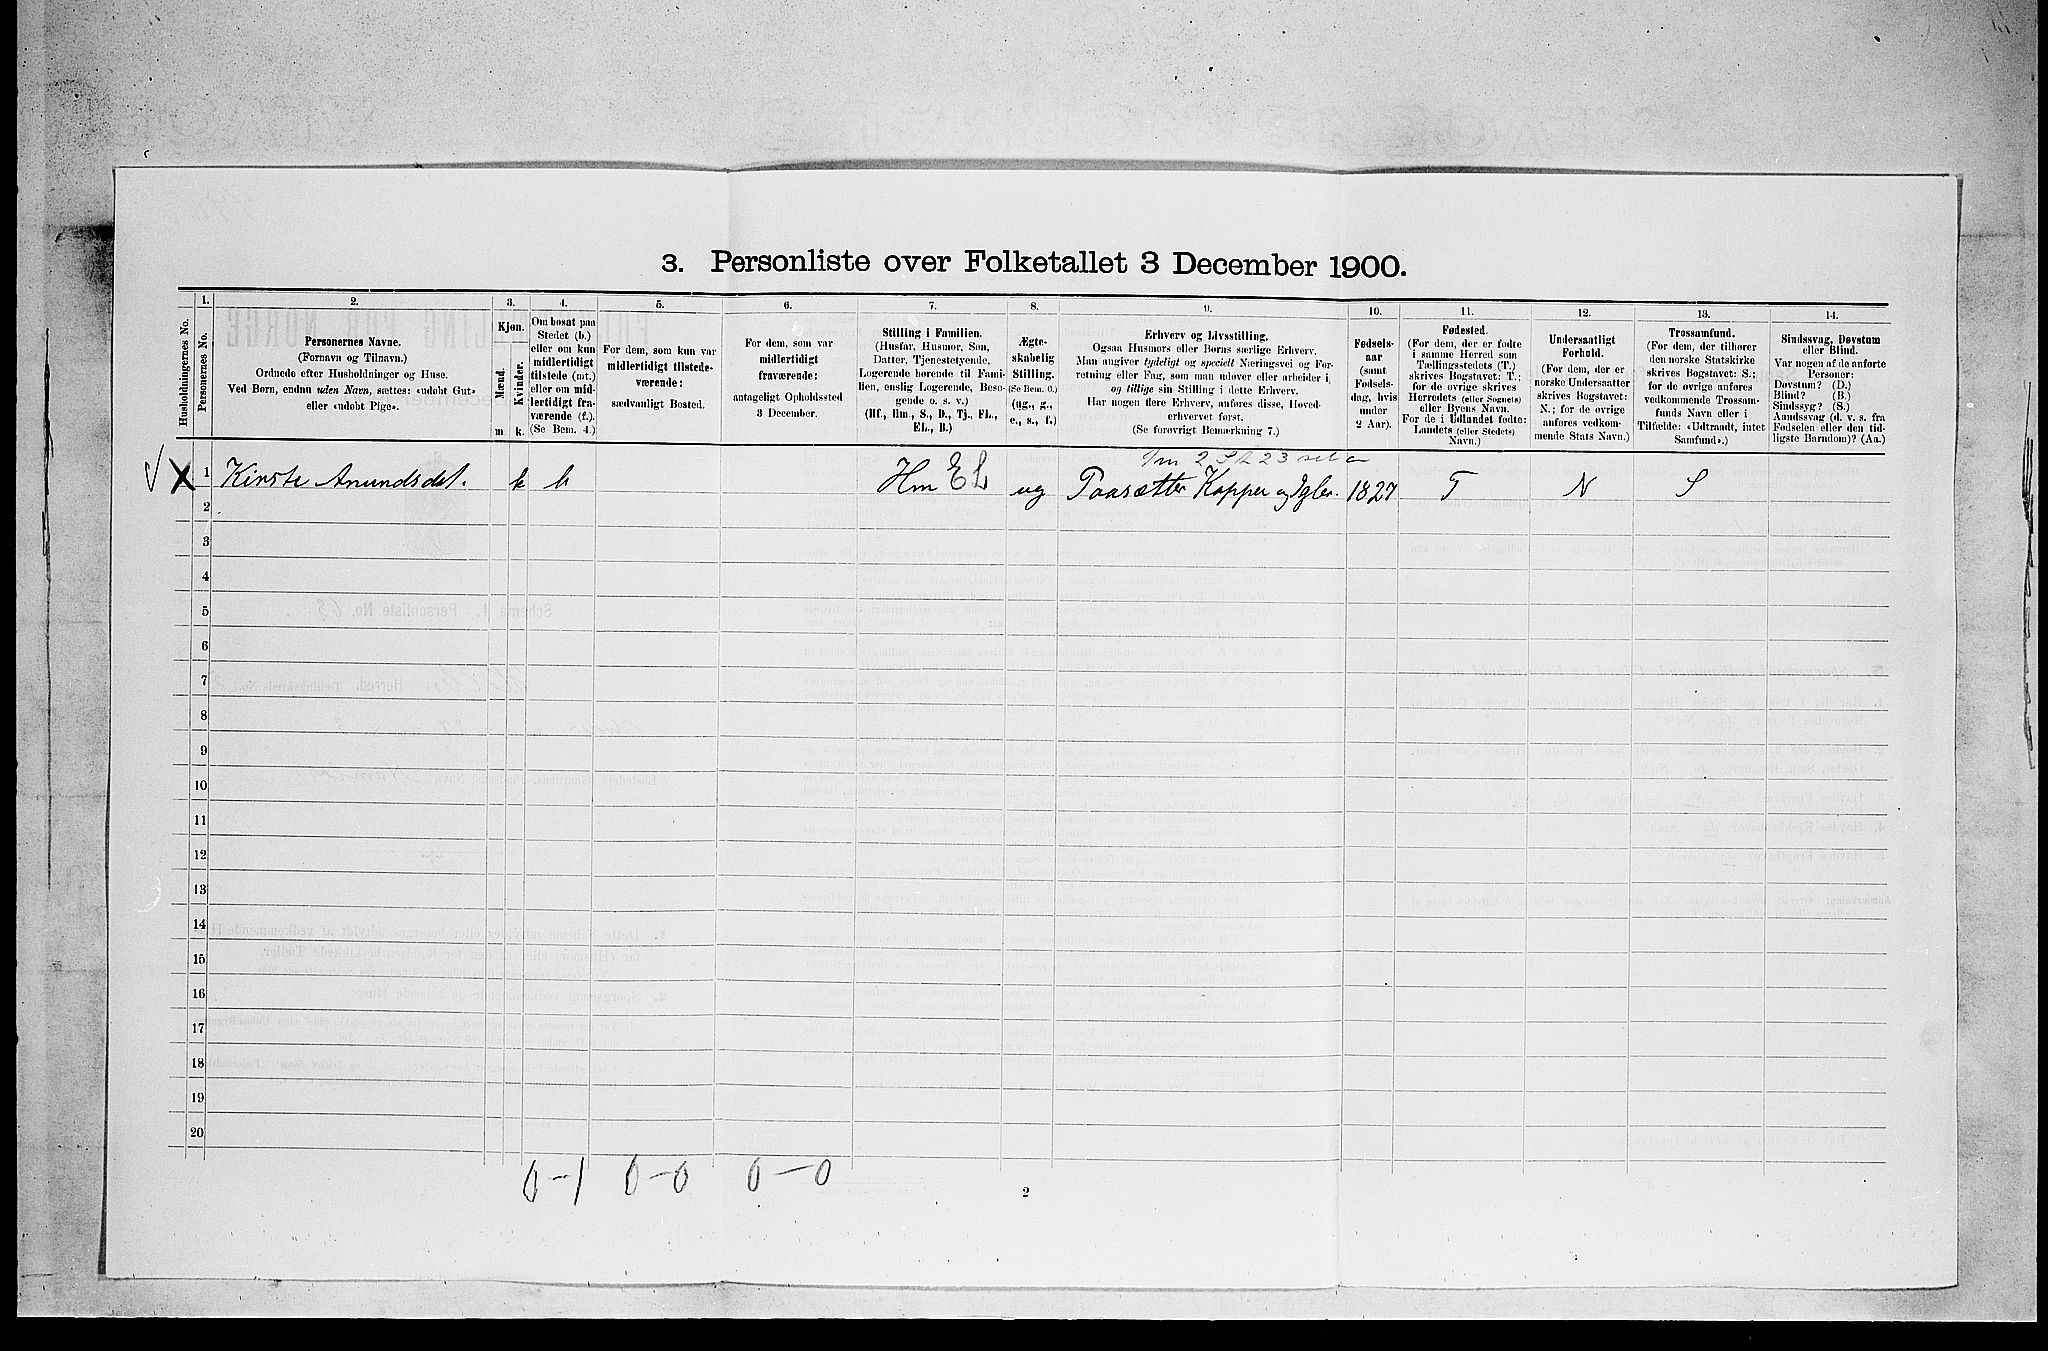 3. Personliste over Folketallet 3 December 1900.
Husholdningernes No.
1.
Personernes No.
2.
Personernes Navne.
(Fornavn og Tilnavn.)
Ordnede efter Husholdninger og Huse.
Ved Børn, endnu uden Navn, sættes: «udøbt Gut»
eller «udøbt Pige».
3.
Kjøn.
Mænd.
Kvinder.
m.
k.
4.
Om bosat paa
Stedet (b.)
eller om kun
midlertidigt
tilstede (mt.)
eller om mid-
lertidigt fra-
værende (f.).
(Se Bem. 4.)
5.
For dem, som kun var
midlertidigt tilstede-
værende:
sædvanligt Bosted.
6.
For dem, som var
midlertidigt
fraværende:
antageligt Opholdssted
3 December.
7.
Stilling i Familien.
(Husfar, Husmor, Søn,
Datter, Tjenestetyende,
Logerende hørende til Fami-
lien, enslig Logerende, Besø-
gende o. s. v.)
(Hf., Hm., S., D., Tj., FL.,
EL., B.)
8.
Ægte-
skabelig
Stilling.
(Se Bem. 6.)
(ug., g.,
e., s., f.)
9.
Erhverv og Livsstilling.
Ogsaa Husmors eller Børns særlige Erhverv.
Man angiver tydeligt og specielt Næringsvei og For-
retning eller Fag, som man udøver eller arbeider i,
og tillige sin Stilling i dette Erhverv.
Har nogen flere Erhverv, anføres disse, Hoved-
erhvervet først.
(Se forøvrigt Bemærkning 7.)
10.
Fødsels-
aar
(samt
Fødsels-
dag, hvis
under
2 Aar).
11.
Fødested.
(For dem, der er fødte
i samme Herred som
Tællingsstedets (T.)
skrives Bogstavet: T.;
for de øvrige skrives
Herredets (eller Sognets)
eller Byens Navn.
For de i Udlandet fødte:
Landets (eller Stedets)
Navn.)
12.
Undersaatligt
Forhold.
(For dem, der er
norske Undersaatter
skrives Bogstavet:
N.; for de øvrige
anføres vedkom-
mende Stats Navn.)
13.
Trossamfund.
(For dem, der tilhører
den norske Statskirke
skrives Bogstavet: S.;
for de øvrige anføres
vedkommende Trossam-
funds Navn eller i
Tilfælde: «Udtraadt, intet
Samfund».)
14.
Sindssvag, Døvstum
eller Blind.
Var nogen af de anførte
Personer:
Døvstum? (D.)
Blind? (B.)
Sindssyg? (S.)
Aandssvag (d. v. s. fra
Fødselen eller den tid-
ligste Barndom)? (Aa.)
1 Kirste Anundsdat. k b Hm EL ug Paasætter Kopper og Igler. 1827 T N S
2
3
4
5
6
7
8
9
10
11
12
13
14
15
16
17
18
19
20
0-1 0-0 0-0
2